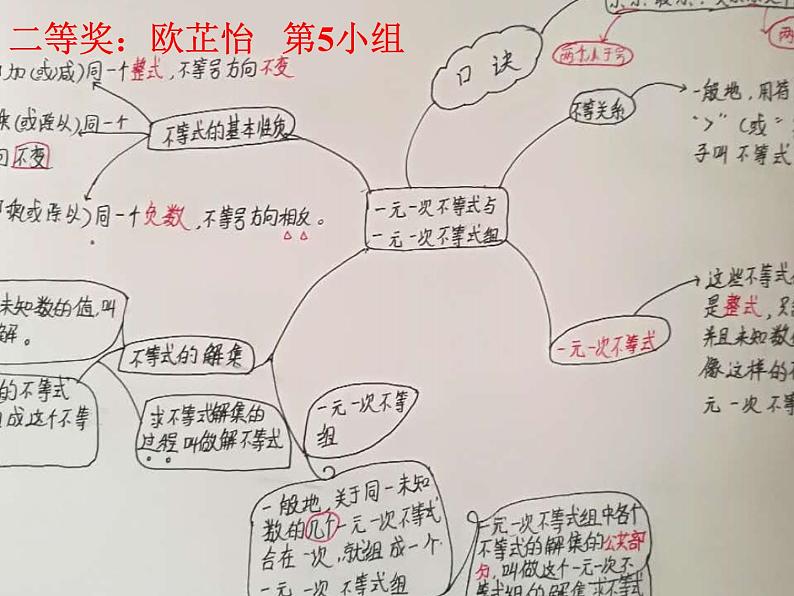 二等奖：欧芷怡 第5小组
加(或减)同一个整式,不等号方向不变
(或除以)同一个
不变
乘(或除以)同一个负数,不等号方向相反。
不等式的基本性质
口诀
两个大于号
两
不等关系
一般地,用符
“>”(或“
子叫不等式
一元一次不等式与
一元一次不等式组
一元一次不等式
这些不等式
是整式,只
并且未知数
像这样的不
元一次不等
未知数的值,叫
解。
不等式的解集
的不等式
成这个不等
求不等式解集的
过程叫做解不等式
一元一次不等
组
一般地,关于同一未知
数的几个一元一次不等式
合在一次,就组成一个
一元一次不等式组
一元一次不等式组中各个
不等式的解集的公共部
分,叫做这个一元一次不
等式组的解集求不等式